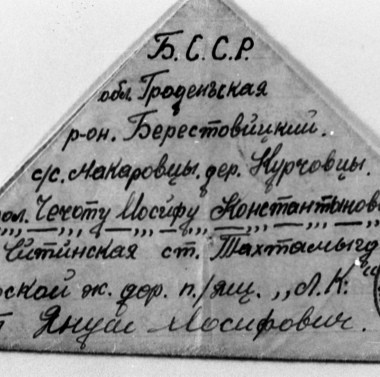 Б.С.С.Р.
обл Гроденьская
р-он. Берестовицкий.
с/с. Макаровцы. дер. Курчовцы.
пол. Чечоту Иосифу Константынов
Читинская ст. Тахтамыгд
ской ж. дор. п/ящ. „Л.К."
Януш Иосифович.